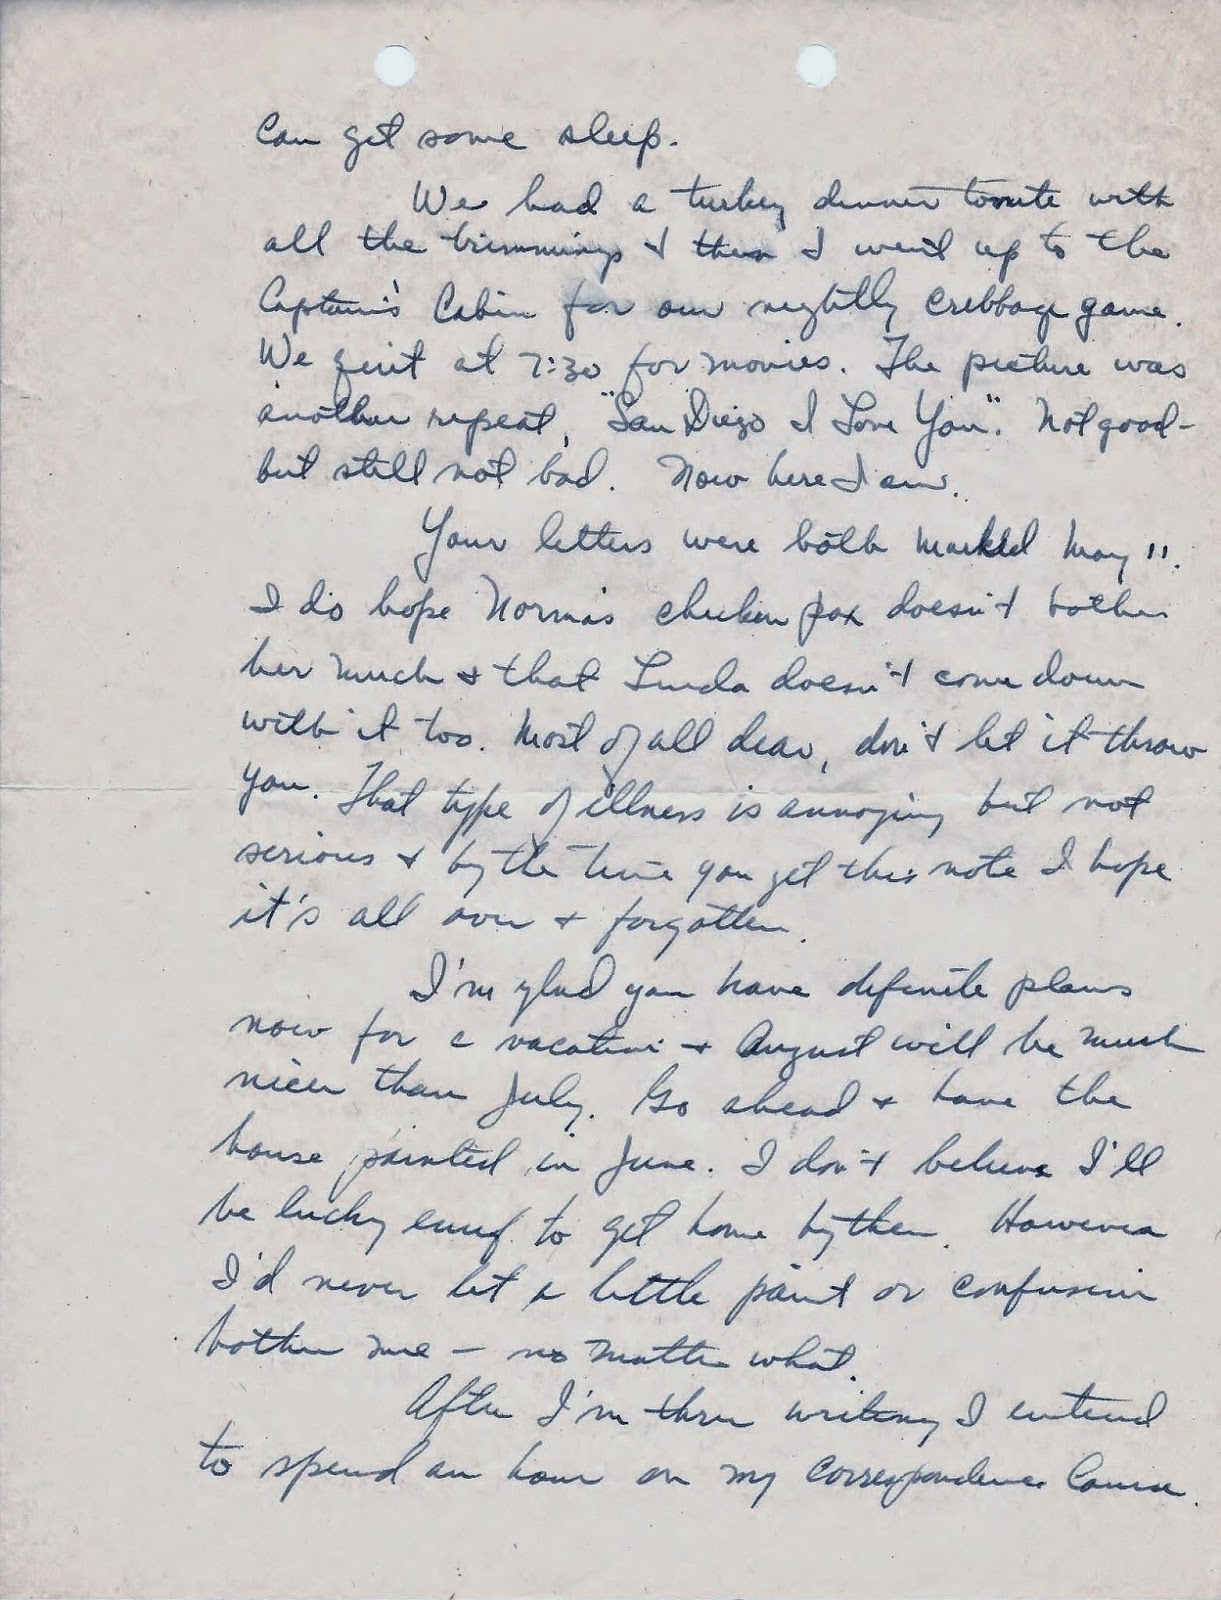 Can get some sleep.
We had a turkey dinner tonite with
all the trimmings & then I went up to the
Captain's Cabin for our nightly cribbage game.
We quit at 7:30 for movies. The picture was
another repeat, "San Diego I Love You". Not good -
but still not bad. Now here I am.
Your letters were both marked May 11.
I do hope Norma's chicken pox doesn't bother
her much & that Linda doesn't come down
with it too. Most of all dear, don't let it throw
you. That type of illness is annoying but not
serious & by the time you get this note I hope
it's all over & forgotten.
I'm glad you have definite plans
now for a vacation & August will be much
nicer than July. Go ahead & have the
house painted in June. I don't believe I'll
be lucky enuf to get home by then. However
I'd never let a little paint or confusion
bother me - no matter what.
After I'm thru writing I intend
to spend an hour on my correspondence Course.